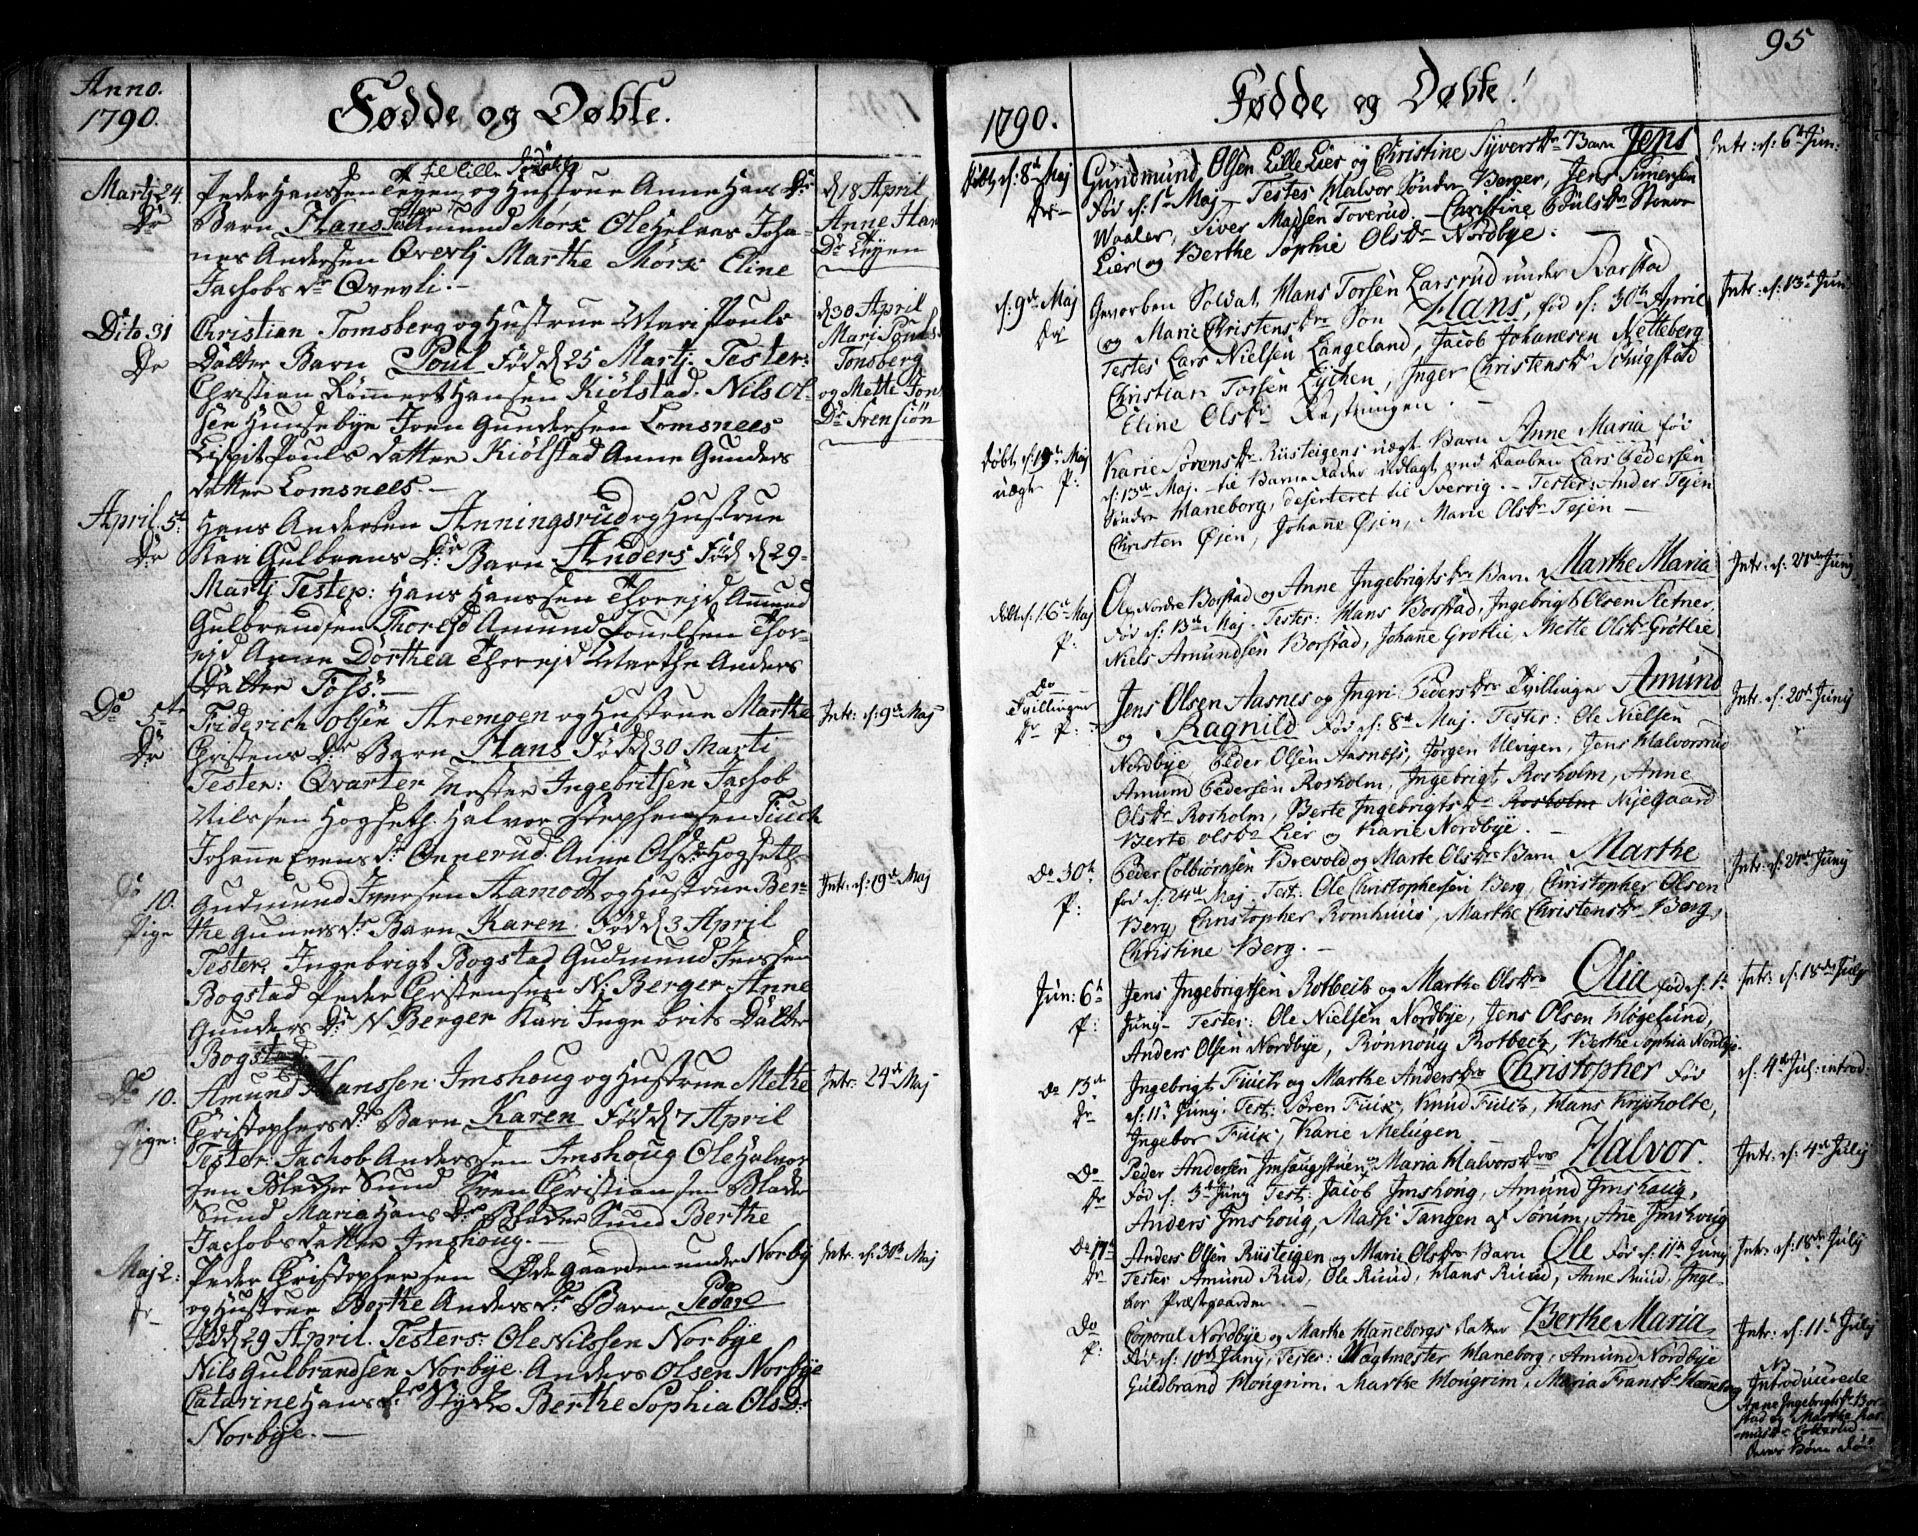 Anno.
1790.
Födde og Döbte.
Martj 24.
Dr
Peder Hanssen Teyen og Hustrue Anne Hans Dr
Barn Hans Test Amund Mörk Ole
nes Andersen Qverlj Marthe Mörk Eline
Jachobs dr Qverli.-
d 18 April
Anne Han
Dr Teyen
Dito 31
Dr
Christian Tomsberg og Hustrue Mari Pouls
Datter Barn Poul Föd d 25 Martj. Tester:
Christian Römmert Hansen Kiölstad. Nils Ol-
sen Hunsebye Joen Gundersen Lomsnees
Lispit Pouls datter Kiölstad Anne Gunders
datter Lomsnees.-
d 30 April
Mari Pouls
Tonsberg
og Mette Jons
Dr Svensiön
April. 5t
Dr
Hans Andersen Anningsrud og Hustrue
Kari Gulbrans Dr Barn Anders Föd d 29-
Martj Tester: Hans Hanssen Thorejd Amund
Gulbrandsen Thorejd Amund Pouelsen Thor-
ejd Anne Dorthea Thorejd Marthe Anders
Datter Foss.-
Do 5te
Dr
Friderich Olsen Aremgen og Hustrue Marthe
Christens Dr Barn Hans Föd d 30 Marti
Tester: Qvarter Mester Ingebritsen Jachob
Nilssen Hogseth Halvor Stephensen Fiuch
Johanne Evens dr Onnerud. Anne Ols dr Hogseth
Intr: d: 9de Maj
Do 10.
Pige
Gudmund Iversen Aamodt og Hustrue Ber-
the Guners dr Barn Karen Föd d 3 April
Tester. Ingebrigt Bogstad Gudmund Jenssen
Bogstad Peder Christensen N: Berger Anne
Gunders Dr N Berger Kari Inge brits Datter
Bogstad
Intr: d: 19de Maj
Do 10.
Pige:
Amund Hanssen Imshoug og Hustrue Methe
Christophers dr Barn Karen Föd d 7 April
Tester: Jachob Anderssen Imshoug Ole Halvor
sen Bleder Sund Even Christiansen Bleder
Sund Maria Hans Dr Bleder Sund Berthe
Jachobs datter Imshoug.-
Intr: 24de Maj
Maj 2:
Dr
Peder Christophersen Ödegaarden under Norby
og Hustrue Berthe Anders dr Barn Peder
Föd d 29 April. Testers: Ole Nilssen Norbye
Nils Gulbrandsen Norbye. Anders Olsen Norbye
Catarine Hans dr Berthe Sophia Ols Dr
Norbye.-
Intr: d: 30te Maj
95
1790.
Födde og Döbte!
Döbt d: 8de Maj
Dr
Gundmund Olsen Lille Lier og Christine Syvers dr Barn Jens
Föd d: 1te Maj - Testes Halvor Söndre Berger, Jens Simensen
Waaler, Siver Madsen Toverud. - Christine Pouls dr Store
Lier og Berthe Sophie Ols dr Nordbye.
Intr: d: 6te Jun:
d: 9de Maj
Dr
Gevorben Soldat, Hans Torsen Larsrud under Skarstad
og Marie Christens dr Son Hans, föd d: 30te April
Testes Lars Nielsen Langeland, Jacob Johanesen Netteberg
Christian Torsen Lychen, Inger Christens dr Schugstad
Eline Ols dr Rastningen.
Intr: d: 13de Jun
Döbt d: 19de Maj
uægte P:
Karie Sörens dr Rusteigens uægte Barn Anne Maria föd
d: 13de Maj. - til Barne Fader udlagt ved Daaben Lars Pedersen
Söndre Haneborg, deserteret til Sverrig. - Tester: Ander Tejen
Christen Öien, Johanne Öien, Marie Ols dr Tejen -
Döbt d: 16de Maj
P:
Ole Nordre Borstad og Anne Ingebrigts dr Barn Marthe Maria
föd d: 13de Maj. Tester: Hans Borstad, Ingebrigt Olsen Sletner,
Niels Amundsen Borstad, Johane Grötlie, Mette Ols dr Grötlie
Intr: d: 20de Junj
Do
Tvillinger
Dr P:
Jens Olsen Aasnes og Ingri Peders dr Tvillinger Amund
og Ragnild Föd d: 8de Maj. Tester: Ole Nielsen
Nordbye, Peder Olsen Aasness, Jörgen Ulvigen, Jens Halvorsrud
Amund Pedersen Rosholm, Ingebrigt Rosholm, Anne
Ols dr Rosholm, Berte Ingebrigts dr Rosholm Nijegaard
Berte Ols dr Lier og Karie Nordbye.
Intr: d: 20de Junij
Do 30te
P:
Peder Colbiörnsen Brevold og Marte Ols dr Barn Marthe
föd d: 24de Maj. Test: Ole Christophersen Berg, Christopher Olsen
Berg, Christopher Romhuus, Marthe Christens dr Berg,
Christine Berg. -
Intr: d: 20de Junij
Jun: 6te
P:
Jens Ingebrigtsen Rotbeck og Marthe Ols dr Olia föd d: 1te
Junij - Tester: Ole Nielsen Nordbye, Jens Olsen Högelund,
Anders Olsen Nordbye, Rönnoug Rotbeck, Berthe Sophia Nordbye.
Intr: d: 18de Julj
do 13de
Dr
Ingebrigt Fuick og Marthe Anders dr Christopher föd
d: 11te Junij. Test: Sören Fuik, Knud Fuick, Hans Krijsholte,
Ingebor Fuik, Karie Melugen.
d: 4de Jul: introd.
Do
Dr
Peder Andersen Imsougstuen og Maria Halvors dr Halvor.
Föd d: 3de Junij Test: Jacob Imshoug, Amund Imshoug,
Anders Imshoug, Massi Tangen af Sörum, Ane Imshoug
Intr: d: 4de Julij
Do 17de
Dr
Anders Olsen Rusteigen og Marie Ols dr Barn Ole föd d: 11te Junij
Tester Amund Rud, Ole Ruud, Hans Ruud, Anne Ruud, Inge-
bor Præstgaarden.
Intr: d: 18de Julij
Do
P:
Corporal Nordbye og Marthe Haneborgs datter Berthe Maria,
Föd d: 10de Junij, Tester: Wagtmester Haneborg, Amund Nordbye
Guldbrand Hougrim, Marthe Hougrim, Maria Frans dr Haneborg
Intr: d: 11te Julij
NB
Introducerede
Anne Ingebrigts dr Bor-
stad og Marthe